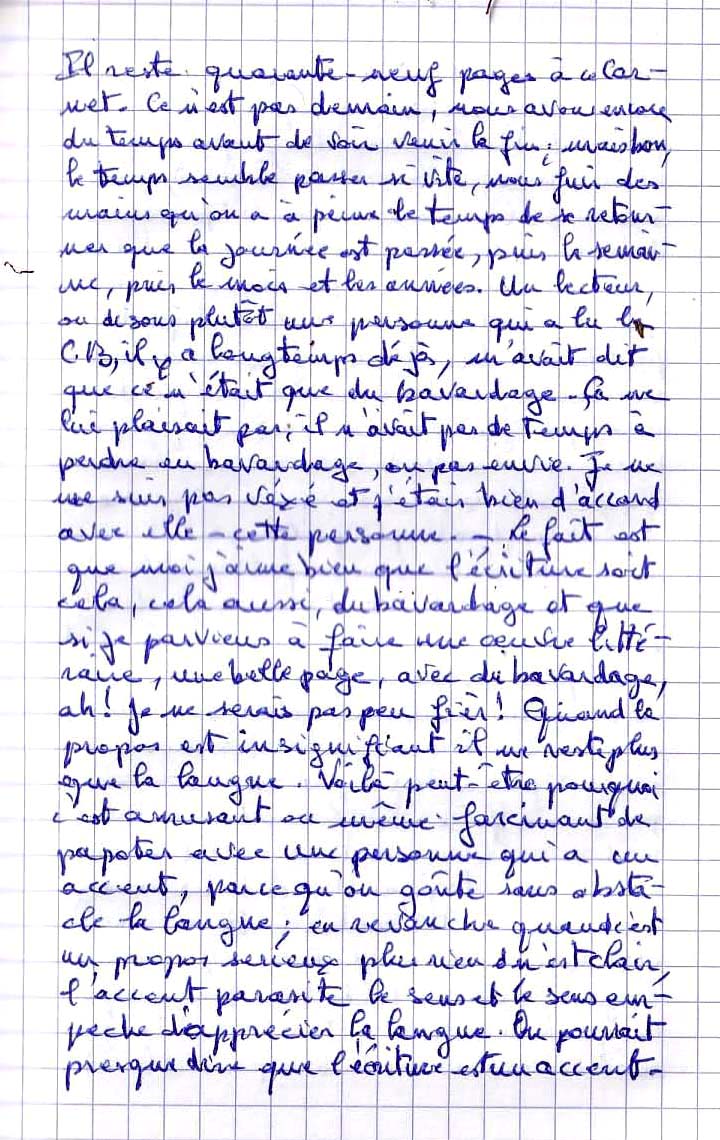 Il reste quarante-neuf pages à ce Car-
net. Ce n'est pas demain, nous avons encore
du temps avant de voir venir la fin ; mais bon,
le temps semble passer si vite, nous fuir des
mains qu'on a à peine le temps de se retour-
ner que la journée est passée, puis la semai-
ne, puis le mois et les années. Un lecteur,
ou disons plutôt une personne qui a lu la
CB, il y a longtemps déjà, m'avait dit
que ce n'était que du bavardage. Ça ne
lui plaisait pas, il n'avait pas de temps à
perdre en bavardage, ou pas envie. Je ne
me suis pas vexé et j'étais bien d'accord
avec elle – cette personne. – Le fait est
que moi j'aime bien que l'écriture soit
cela, cela aussi, du bavardage et que
si je parviens à faire une oeuvre litté-
raire, une belle page, avec du bavardage,
ah! Je ne serais pas peu fier! Quand le
propos est insignifiant il ne reste plus
que la langue. Voilà peut-être pourquoi
c'est amusant ou même fascinant de
papoter avec une personne qui a un
accent, parce qu'on goûte sans obsta-
cle la langue ; en revanche quand c'est
un propos sérieux plus rien n'est clair,
l'accent parasite le sens et le sens em-
pêche d'apprécier la langue. On pourrait
presque dire que l'écriture est un accent.